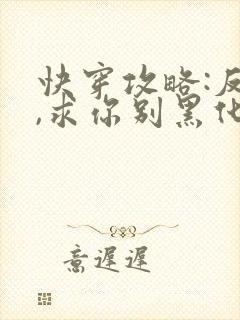 快穿攻略:反
,求你别黑化
意遲遲